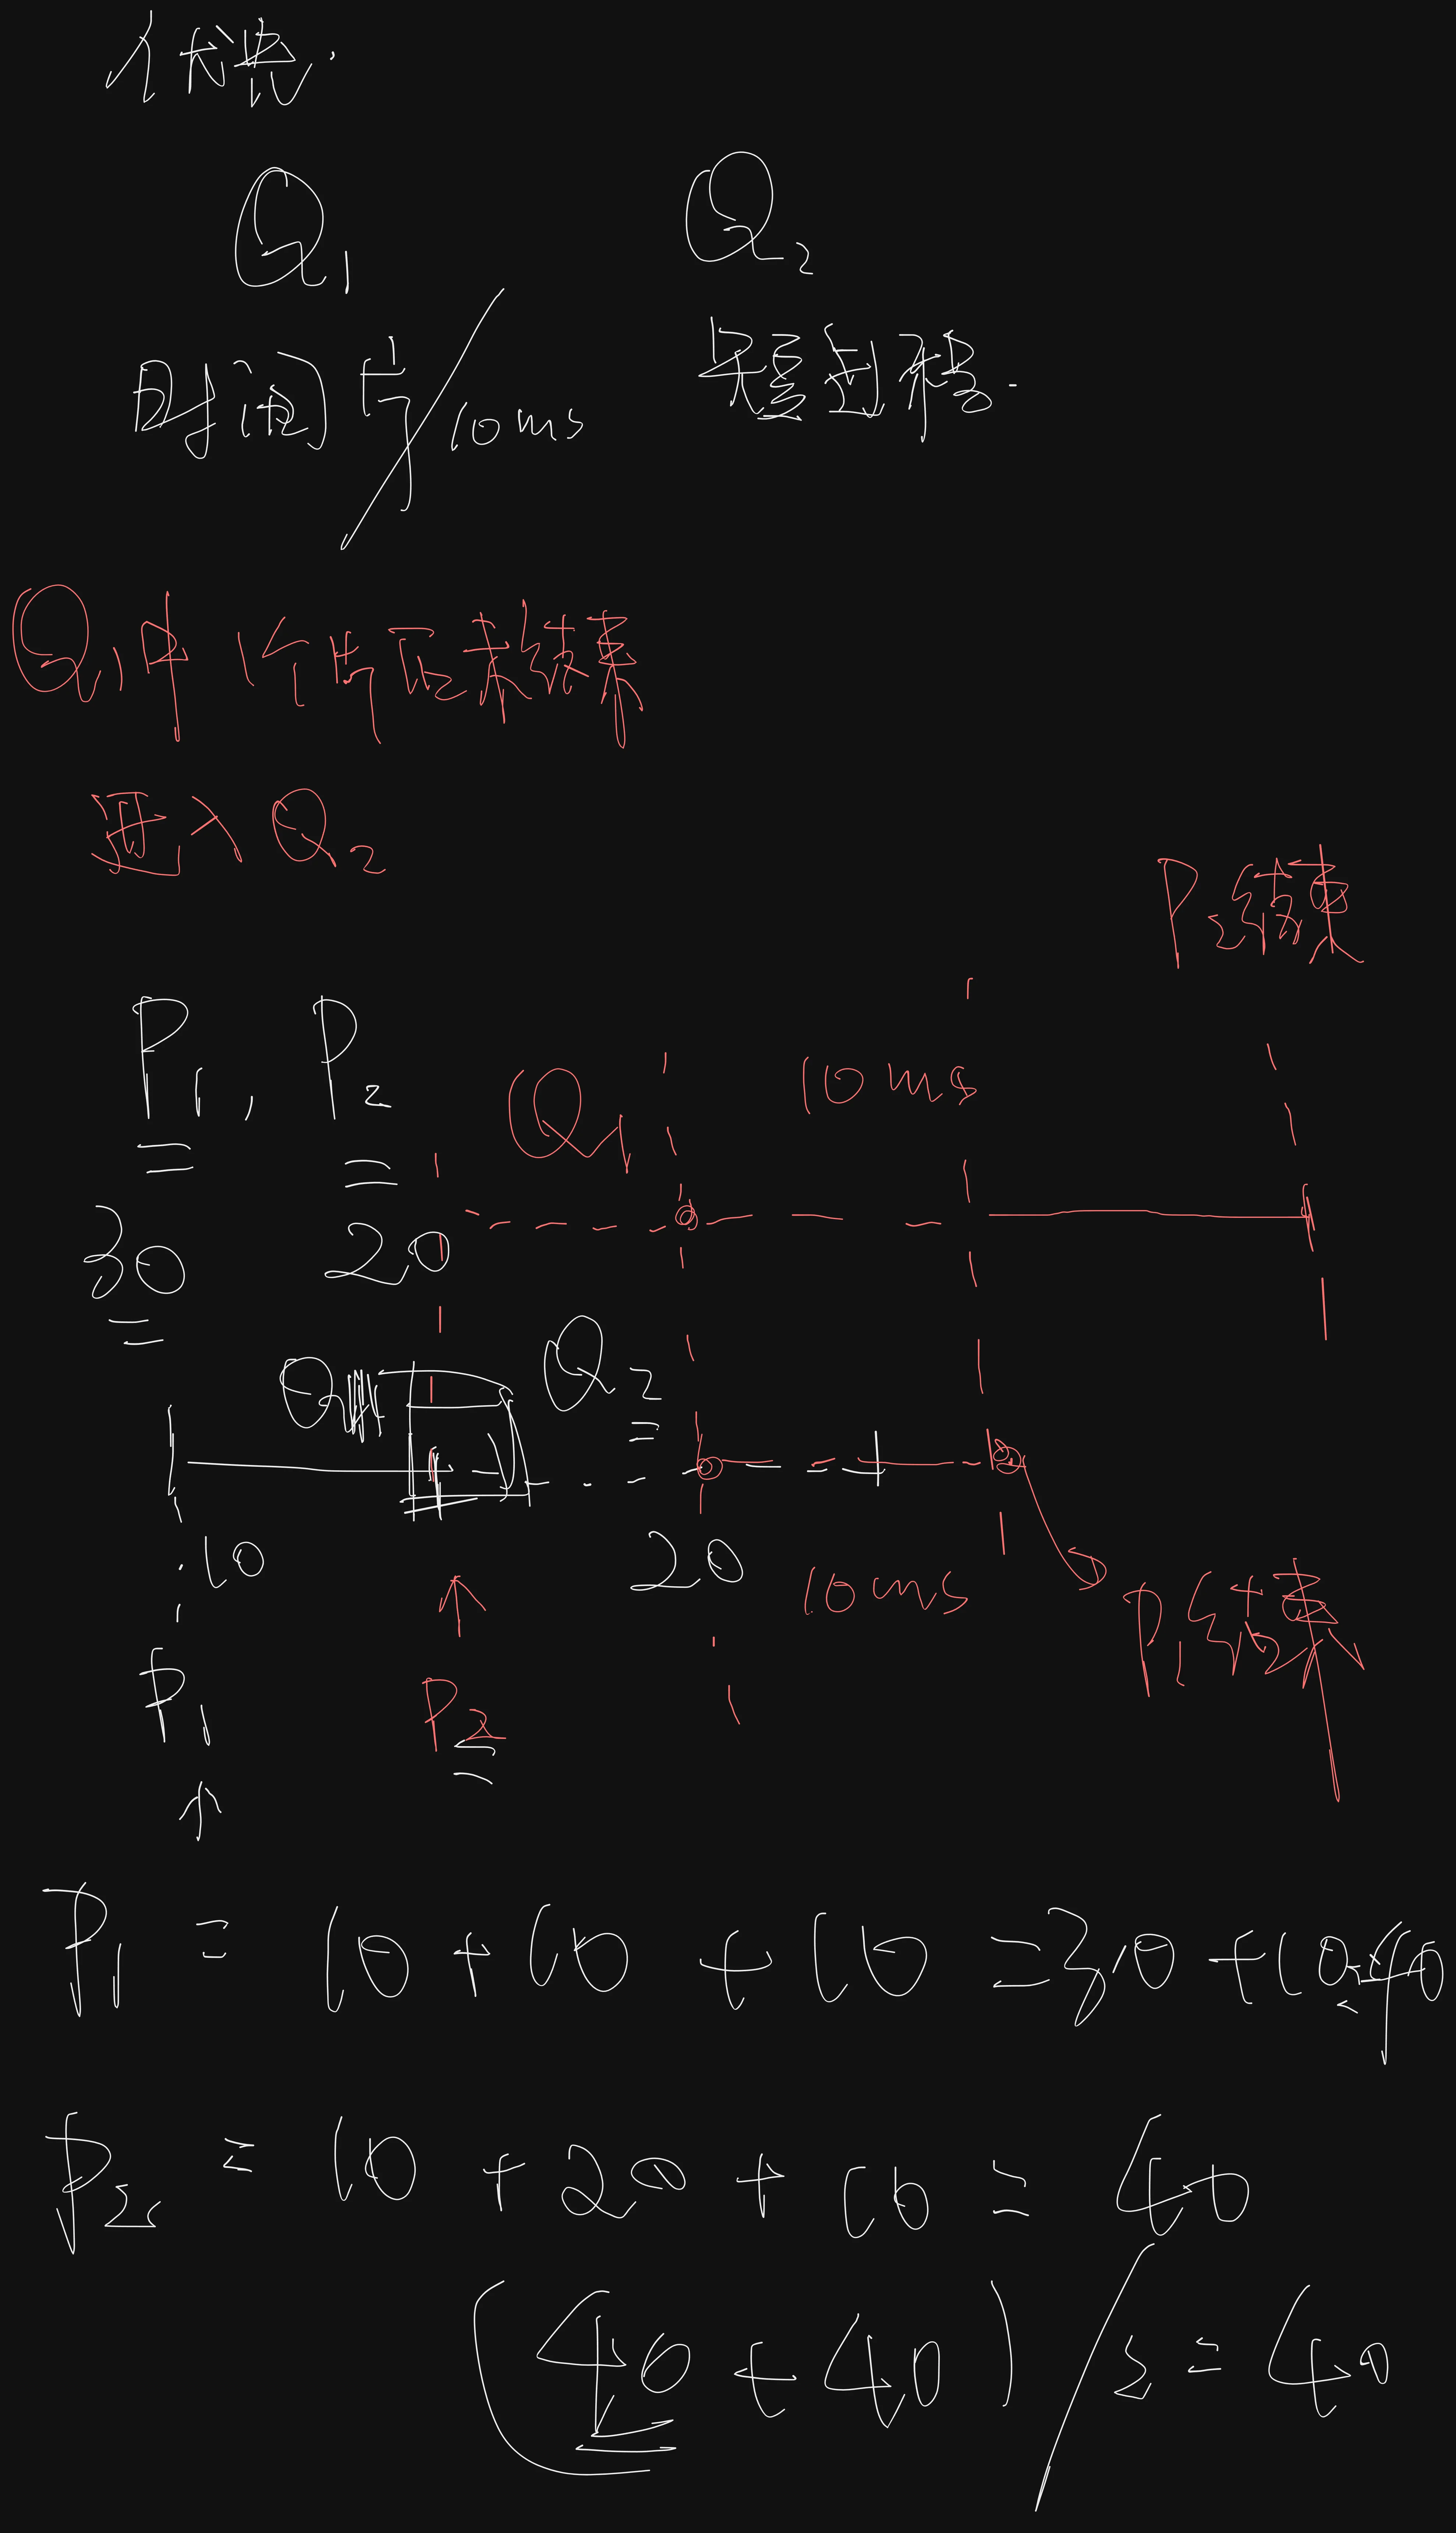 优先.
Q1 Q2
时间片/10ms 短进程.
Q1中1个片区未结束
进入Q2
P2结束
P1, P2
Q1 10ms
30 20
Q2
10 20 10ms
P1结束
P1 P2
P1 = 10 + 10 + 10 = 30 + 10 = 40
P2 = 10 + 20 + 10 = 40
(40 + 40) / 2 = 40